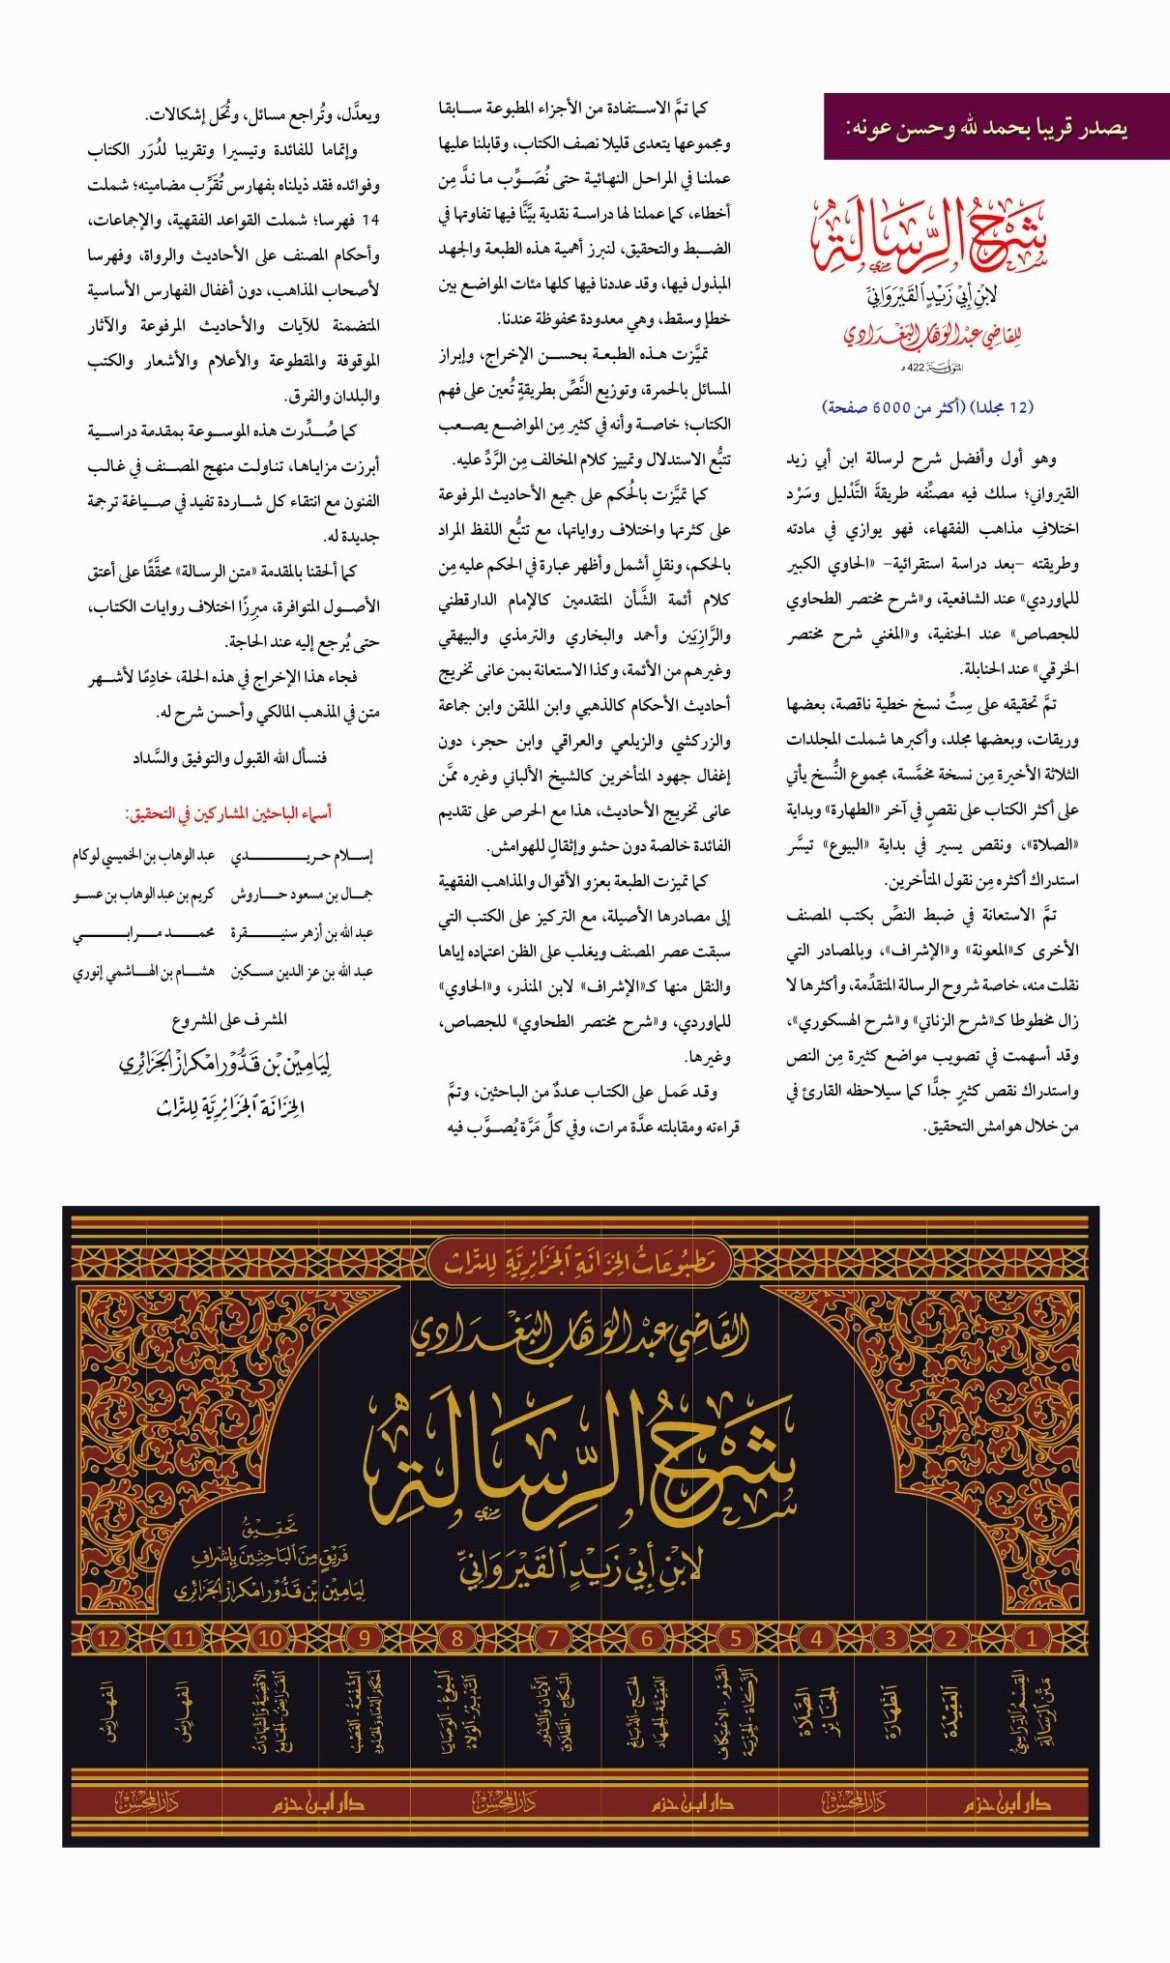 يصدر قريبا بحمد لله وحسن عونه:
شَرْحُ الرِّسَالَةِ
لابْنِ أَبِيْ زَيْدٍ القَيْرَوَانِيِّ
لِلقَاضِي عَبْدِ الوَهَّابِ البَغْدَادِي
المتوفى سنة 422 هـ
(12 مجلدا) (أكثر من 6000 صفحة)
وهو أول وأفضل شرح لرسالة ابن أبي زيد
القيرواني؛ سلك فيه مصنِّفه طريقةَ التَّدْليل وسَرْد
اختلافِ مذاهب الفقهاء، فهو يوازي في مادته
وطريقته -بعد دراسة استقرائية- «الحاوي الكبير
للماوردي» عند الشافعية، و«شرح مختصر الطحاوي
للجصاص» عند الحنفية، و«المغني شرح مختصر
الخرقي» عند الحنابلة.
تمَّ تحقيقه على سِتِّ نسخ خطية ناقصة، بعضها
وريقات، وبعضها مجلد، وأكبرها شملت المجلدات
الثلاثة الأخيرة مِن نسخة مخمَّسة، مجموع النُّسخ يأتي
على أكثر الكتاب على نقصٍ في آخر «الطهارة» وبداية
«الصلاة»، ونقص يسير في بداية «البيوع» تيسَّر
استدراك أكثره مِن نقول المتأخرين.
تمَّ الاستعانة في ضبط النصِّ بكتب المصنف
الأخرى كـ«المعونة» و«الإشراف»، وبالمصادر التي
نقلت منه، خاصة شروح الرسالة المتقدِّمة، وأكثرها لا
زال مخطوطا كـ«شرح الزناتي» و«شرح الهسكوري»،
وقد أسهمت في تصويب مواضع كثيرة مِن النص
واستدراك نقص كثيرٍ جدًّا كما سيلاحظه القارئ في
من خلال هوامش التحقيق.
كما تمَّ الاستفادة من الأجزاء المطبوعة سابقا
ومجموعها يتعدى قليلا نصف الكتاب، وقابلنا عليها
عملنا في المراحل النهائية حتى نُصَوِّب ما ندَّ مِن
أخطاء، كما عملنا لها دراسة نقدية بيَّنَّا فيها تفاوتها في
الضبط والتحقيق، لنبرز أهمية هذه الطبعة والجهد
المبذول فيها، وقد عددنا فيها كلها مئات المواضع بين
خطإ وسقط، وهي معدودة محفوظة عندنا.
تميَّزت هذه الطبعة بحسن الإخراج، وإبراز
المسائل بالحمرة، وتوزيع النَّصِّ بطريقةٍ تُعين على فهم
الكتاب؛ خاصة وأنه في كثير مِن المواضع يصعب
تتبُّع الاستدلال وتمييز كلام المخالف مِن الرَّدِّ عليه.
كما تميَّزت بالحُكم على جميع الأحاديث المرفوعة
على كثرتها واختلاف رواياتها، مع تتبُّع اللفظ المراد
بالحكم، ونقلِ أشمل وأظهر عبارة في الحكم عليه مِن
كلام أئمة الشَّأن المتقدمين كالإمام الدارقطني
والرَّازِيَين وأحمد والبخاري والترمذي والبيهقي
وغيرهم من الأئمة، وكذا الاستعانة بمن عانى تخريج
أحاديث الأحكام كالذهبي وابن الملقن وابن جماعة
والزركشي والزيلعي والعراقي وابن حجر، دون
إغفال جهود المتأخرين كالشيخ الألباني وغيره ممَّن
عانى تخريج الأحاديث، هذا مع الحرص على تقديم
الفائدة خالصة دون حشو وإثقالٍ للهوامش.
كما تميزت الطبعة بعزو الأقوال والمذاهب الفقهية
إلى مصادرها الأصيلة، مع التركيز على الكتب التي
سبقت عصر المصنف ويغلب على الظن اعتماده إياها
والنقل منها كـ«الإشراف» لابن المنذر، و«الحاوي»
للماوردي، و«شرح مختصر الطحاوي» للجصاص،
وغيرها.
وقد عَمل على الكتاب عددٌ من الباحثين، وتمَّ
قراءته ومقابلته عدَّة مرات، وفي كلِّ مَرَّة يُصوَّب فيه
ويعدَّل، وتُراجع مسائل، وتُحَل إشكالات.
وإتماما للفائدة وتيسيرا وتقريبا لدُرَر الكتاب
وفوائده فقد ذيلناه بفهارس تُقَرِّب مضامينه؛ شملت
14 فهرسا؛ شملت القواعد الفقهية، والإجماعات،
وأحكام المصنف على الأحاديث والرواة، وفهرسا
لأصحاب المذاهب، دون أغفال الفهارس الأساسية
المتضمنة للآيات والأحاديث المرفوعة والآثار
الموقوفة والمقطوعة والأعلام والأشعار والكتب
والبلدان والفرق.
كما صُدِّرت هذه الموسوعة بمقدمة دراسية
أبرزت مزاياها، تناولت منهج المصنف في غالب
الفنون مع انتقاء كل شاردة تفيد في صياغة ترجمة
جديدة له.
كما ألحقنا بالمقدمة «متن الرسالة» محقَّقًا على أعتق
الأصول المتوافرة، مبرِزًا اختلاف روايات الكتاب،
حتى يُرجع إليه عند الحاجة.
فجاء هذا الإخراج في هذه الحلة، خادِمًا لأشهر
متن في المذهب المالكي وأحسن شرح له.
فنسأل الله القبول والتوفيق والسَّداد
أسماء الباحثين المشاركين في التحقيق:
إسلام حريدي عبد الوهاب بن الخميسي لوكام
جمال بن مسعود حاروش كريم بن عبد الوهاب بن عسو
عبد الله بن أزهر سنيقرة محمد مرابي
عبد الله بن عز الدين مسكين هشام بن الهاشمي إنوري
المشرف على المشروع
لِيَامِيْن بْن قَدُّوْر امْكرَاز الجَزَائِرِي
الخِزَانَة الجَزَائِرِيَّة لِلتُّرَاث
مَطْبُوعَاتُ الخِزَانَةِ الجَزَائِرِيَّةِ لِلتُّرَاثِ
القَاضِي عَبْدُ الوَهَّابِ البَغْدَادِي
شَرْحُ الرِّسَالَةِ
لابْنِ أَبِيْ زَيْدٍ القَيْرَوَانِيِّ
تَحْقِيْقُ
فَرِيْقٍ مِنَ البَاحِثِينَ بِإِشْرَافِ
لِيَامِيْن بْن قَدُّوْر امْكرَاز الجَزَائِرِي
1 2 3 4 5 6 7 8 9 10 11 12
القِسْمُ الدِّرَاسِيُّ
مَتْنُ الرِّسَالَةِ
العَقِيْدَة
الطَّهَارَة
الصَّلَاة
الجَنَائِز
الزَّكَاة - الجِزْيَة
الصَّوْم - الاعْتِكَاف
الحَج - الذَّبَائِح
العَقِيْقَة - الجِهَاد
الأَيْمَان وَالنُّذُور
النِّكَاح - الطَّلَاق
البُيُوع - الوَصَايَا
التَّدْبِيْر - الوَلَاء
الشُّفْعَة - الغَصْب
أَحْكَام الدِّمَاء وَالحُدُود
الأَقْضِيَة وَالشَّهَادَات
الفَرَائِض - الجَامِع
الفَهَارِسُ
الفَهَارِسُ
دار ابن حزم دَارُ المُحْسِن دار ابن حزم دَارُ المُحْسِن دار ابن حزم دَارُ المُحْسِن